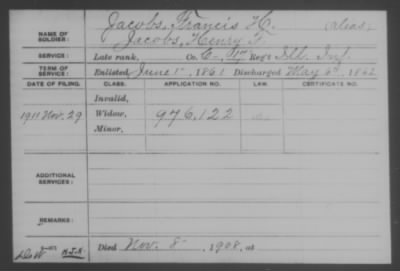 Jacobs, Francis H. (alias)
NAME OF SOLDIER: Jacobs, Henry F.
SERVICE: Late rank, Co. Reg't Ill. Inf.
TERM OF SERVICE: Enlisted June 1", 1861 Discharged May 1862
DATE OF FILING. CLASS. APPLICATION NO. LAW. CERTIFICATE NO.
Invalid,
1911 Nov. 29 Widow, 976,122
Minor,
ADDITIONAL SERVICES:
REMARKS:
Died Nov. 8", 1908, at